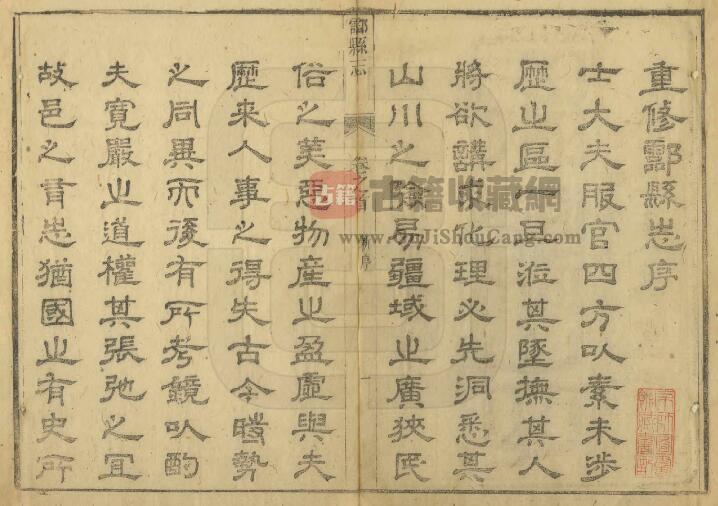 重修酃縣志序
士大夫服官四方以素未涉
歷之區一旦涖其墬撫其人
將欲講求化理必先洞悉其
山川之險易疆域之廣狹民
酃縣志 卷之首 序 一
俗之美惡物産之盈虛與夫
歷来人事之得失古今時勢
之同異而後有所考鏡以酌
夫寬嚴之道權其張弛之宜
故邑之有志猶國之有史所
古籍 古籍收藏网
www.GuJiShouCang.com